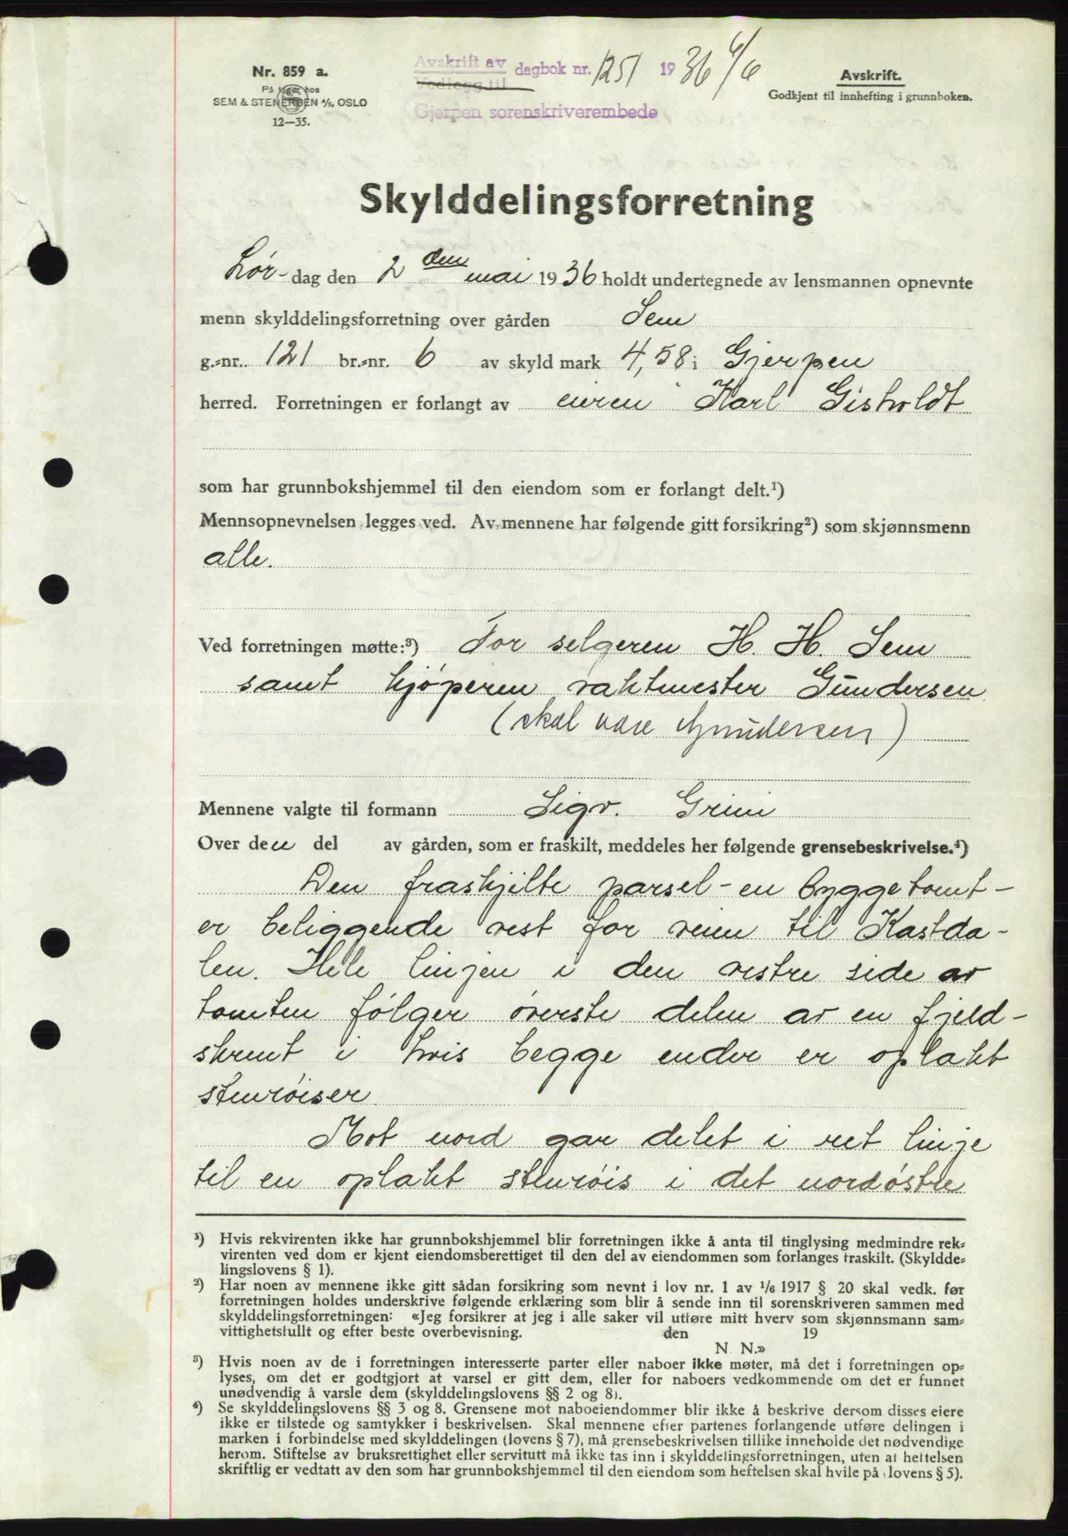 Nr. 859 a.
På lager hos
SEM & STENERSEN A/S, OSLO
12—35.
Avskrift av
Vedlegg til
dagbok nr. 1251 1936 6/6
Gjerpen sorenskriverembede
Avskrift.
Godkjent til innhefting i grunnboken.
Skylddelingsforretning
Lør- dag den 2 den mai 1936 holdt undertegnede av lensmannen opnevnte
menn skylddelingsforretning over gården Sem
g.-nr. 121 br.-nr. 6 av skyld mark 4,58 i Gjerpen
herred. Forretningen er forlangt av eieren Karl Gisholdt
som har grunnbokshjemmel til den eiendom som er forlangt delt.¹)
Mennsopnevnelsen legges ved. Av mennene har følgende gitt forsikring²) som skjønnsmenn
alle.
Ved forretningen møtte:³) For selgeren H. H. Sem
samt kjøperen vaktmester Gundersen
(skal være Gmudersen)
Mennene valgte til formann Sigv. Grini
Over den del av gården, som er fraskilt, meddeles her følgende grensebeskrivelse.⁴)
Den fraskjilte parsel - en byggetomt -
er beliggende vest for veien til Kastda-
len. Hele linjen i den vestre side av
tomten følger øverste delen av en fjeld-
skrent i hvis begge ender er oplakt
stenrøiser.
Mot nord gar delet i ret linje
til en oplakt stenrøis i det nordøstre
¹) Hvis rekvirenten ikke har grunnbokshjemmel blir forretningen ikke å anta til tinglysing medmindre rek-
virenten ved dom er kjent eiendomsberettiget til den del av eiendommen som forlanges fraskilt. (Skyldde-
lingslovens § 1).
²) Har noen av mennene ikke gitt sådan forsikring som nevnt i lov nr. 1 av 1/6 1917 § 20 skal vedk. før
forretningen holdes underskrive følgende erklæring som blir å sende inn til sorenskriveren sammen med
skylddelingsforretningen: «Jeg forsikrer at jeg i alle saker vil utføre mitt hverv som skjønnsmann sam-
vittighetsfullt og efter beste overbevisning. den 19
N. N.»
³) Hvis noen av de i forretningen interesserte parter eller naboer ikke møter, må det i forretningen op-
lyses, om det er godtgjort at varsel er gitt dem, eller for naboers vedkommende om det er funnet
unødvendig å varsle dem (skylddelingslovens §§ 2 og 8).
⁴) Se skylddelingslovens §§ 3 og 8. Grensene mot naboeiendommer blir ikke å beskrive dersom disses eiere
ikke er tilstede og samtykker i beskrivelsen. Skal mennene efter partenes forlangende utføre delingen i
marken i forbindelse med skylddelingen (lovens § 7), må grensebeskrivelsen tillike inneholde det nødvendige
herom. Stiftelse av bruksrettighet eller servitutt må ikke tas inn i skylddelingsforretningen, uten at heftelsen
skriftlig er vedtatt av den som har grunnbokshjemmel til den eiendom som heftelsen skal hvile på (lovens § 5).